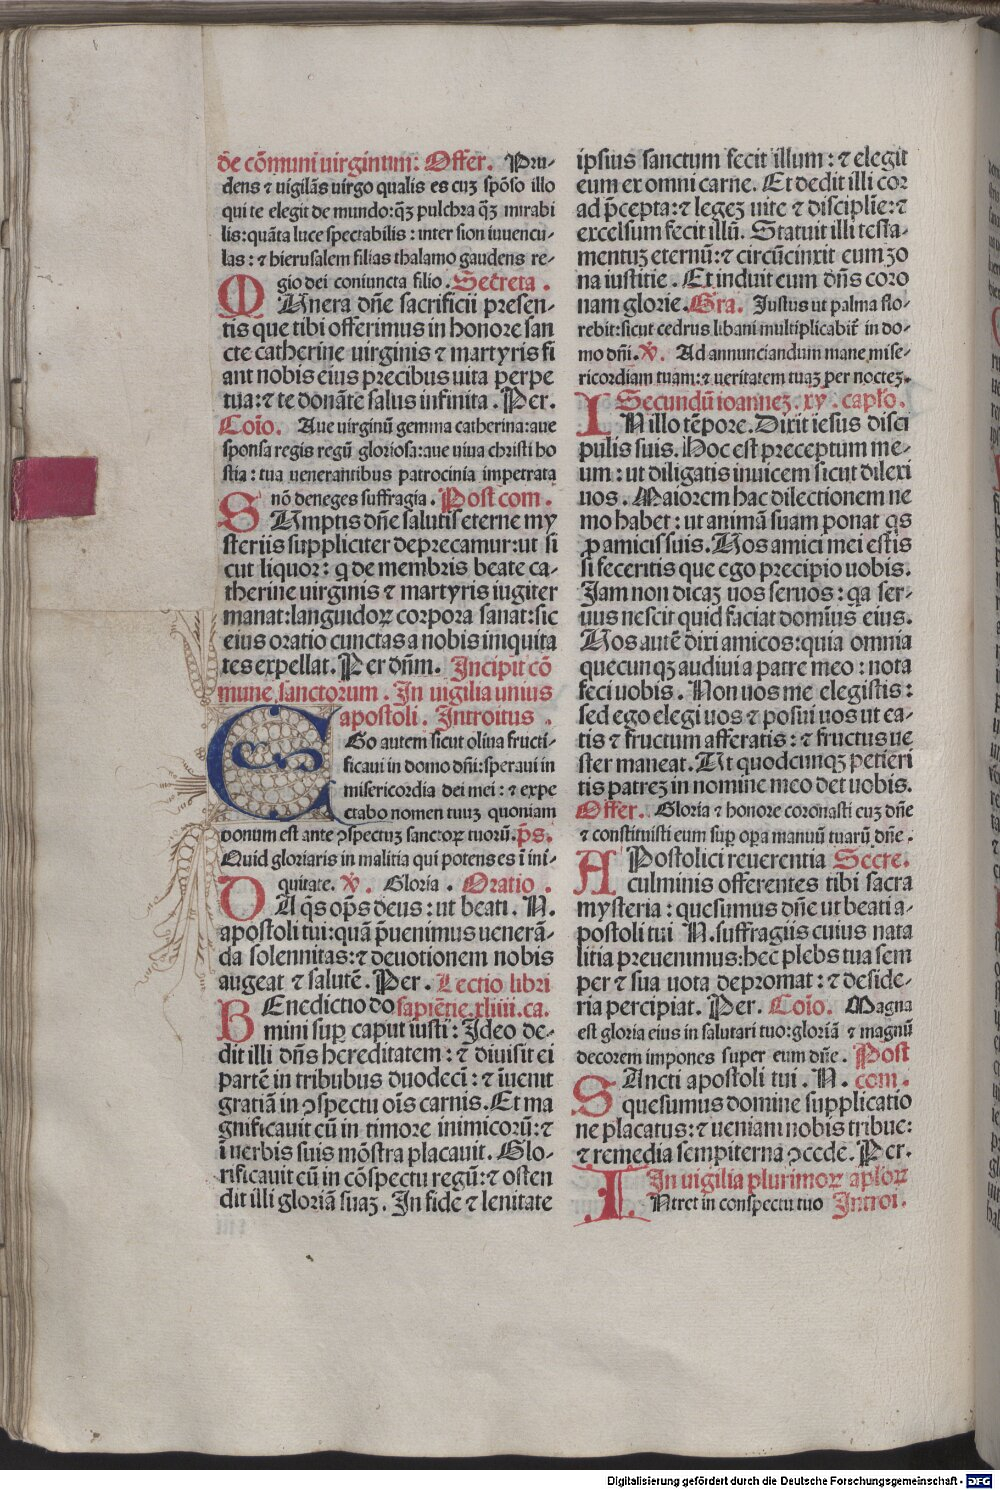 de cōmuni uirginum: Offer. Pru-
dens ⁊ uigilās uirgo qualis es cuȝ spōso illo
qui te elegit de mundo:q̄ȝ pulchra q̄ȝ mirabi
lis:quāta luce spectabilis: inter sion iuuencu-
las: ⁊ hierusalem filias thalamo gaudens re-
gio dei coniuncta filio. Secreta.
MUnera dn̄e sacrificii presen-
tis que tibi offerimus in honore san
cte catherine uirginis ⁊ martyris fi
ant nobis eius precibus uita perpe
tua:⁊ te donāte salus infinita. Per.
Coīo. Aue uirginū gemma catherina:aue
sponsa regis regū gloriosa:aue uiua christi ho
stia: tua uenerantibus patrocinia impetrata
nō deneges suffragia. Post com.
SUmptis dn̄e salutis eterne my
steriis suppliciter deprecamur:ut si
cut liquor: q de membris beate ca-
therine uirginis ⁊ martyris iugiter
manat:languidoꝝ corpora sanat:sic
eius oratio cunctas a nobis iniquita
tes expellat. Per dn̄m. Incipit cō
mune sanctorum. In uigilia unius
apostoli. Introitus.
EGo autem sicut oliua fructi-
ficaui in domo dn̄i:speraui in
misericordia dei mei: ⁊ expe
ctabo nomen tuuȝ quoniam
bonum est ante ꝯspectuȝ sanctoꝝ tuorū. p̄s.
Quid gloriaris in malitia qui potens es ī ini-
quitate. ℣. Gloria. Oratio.
DA q̄s op̄s deus: ut beati. N.
apostoli tui:quā p̄uenimus uenerā-
da solennitas:⁊ deuotionem nobis
augeat ⁊ salutē. Per. Lectio libri
BEnedictio do sapiētie.xliiii.ca.
mini suꝑ caput iusti: Ideo de-
dit illi dn̄s hereditatem: ⁊ diuisit ei
partē in tribubus duodecī: ⁊ īuenit
gratiā in ꝯspectu oīs carnis. Et ma
gnificauit eū in timore inimicorū:⁊
ī uerbis suis mōstra placauit. Glo-
rificauit eū in cōspectu regū:⁊ osten
dit illi gloriā suaȝ. In fide ⁊ lenitate
ipsius sanctum fecit illum: ⁊ elegit
eum ex omni carne. Et dedit illi coꝛ
ad p̄cepta:⁊ legeȝ uite ⁊ disciplīe:⁊
excelsum fecit illū. Statuit illi testa-
mentuȝ eternū:⁊ circūcinxit eum ȝo
na iustitie. Et induit eum dn̄s coro
nam glorie. Gra. Iustus ut palma flo-
rebit:sicut cedrus libani multiplicabit̄ in do-
mo dn̄i. ℣. Ad annunciandum mane mise-
ricordiam tuam:⁊ ueritatem tuaȝ per nocteȝ.
Secundū ioanneȝ.xv.capl̄o.
IN illo tēpore. Dixit iesus disci
pulis suis. Hoc est preceptum me-
um: ut diligatis inuicem sicut dilexi
uos. Maiorem hac dilectionem ne
mo habet: ut animā suam ponat qs
ꝓ amicis suis. Uos amici mei estis
si feceritis que ego precipio uobis.
Iam non dicaȝ uos seruos: qa ser-
uus nescit quid faciat domīus eius.
Uos autē dixi amicos:quia omnia
quecunqȝ audiui a patre meo: nota
feci uobis. Non uos me elegistis:
sed ego elegi uos ⁊ posui uos ut ea-
tis ⁊ fructum afferatis: ⁊ fructus ue
ster maneat. Ut quodcunqȝ petieri
tis patreȝ in nomine meo det uobis.
Offer. Gloria ⁊ honore coronasti euȝ dn̄e
⁊ constituisti eum suꝑ oꝑa manuū tuarū dn̄e.
APostolici reuerentia Secre.
culminis offerentes tibi sacra
mysteria: quesumus dn̄e ut beati a-
postoli tui N. suffragiis cuius nata
litia preuenimus:hec plebs tua sem
per ⁊ sua uota depromat: ⁊ deside-
ria percipiat. Per. Coīo. Magna
est gloria eius in salutari tuo:gloriā ⁊ magnū
decorem impones super eum dn̄e. Post
SAncti apostoli tui. N. com.
quesumus domine supplicatio
ne placatus:⁊ ueniam nobis tribue:
⁊ remedia sempiterna ꝯcede. Per.
In uigilia plurimoꝝ apl̄oꝝ
INtret in conspectu tuo Introi.
Digitalisierung gefördert durch die Deutsche Forschungsgemeinschaft - DFG